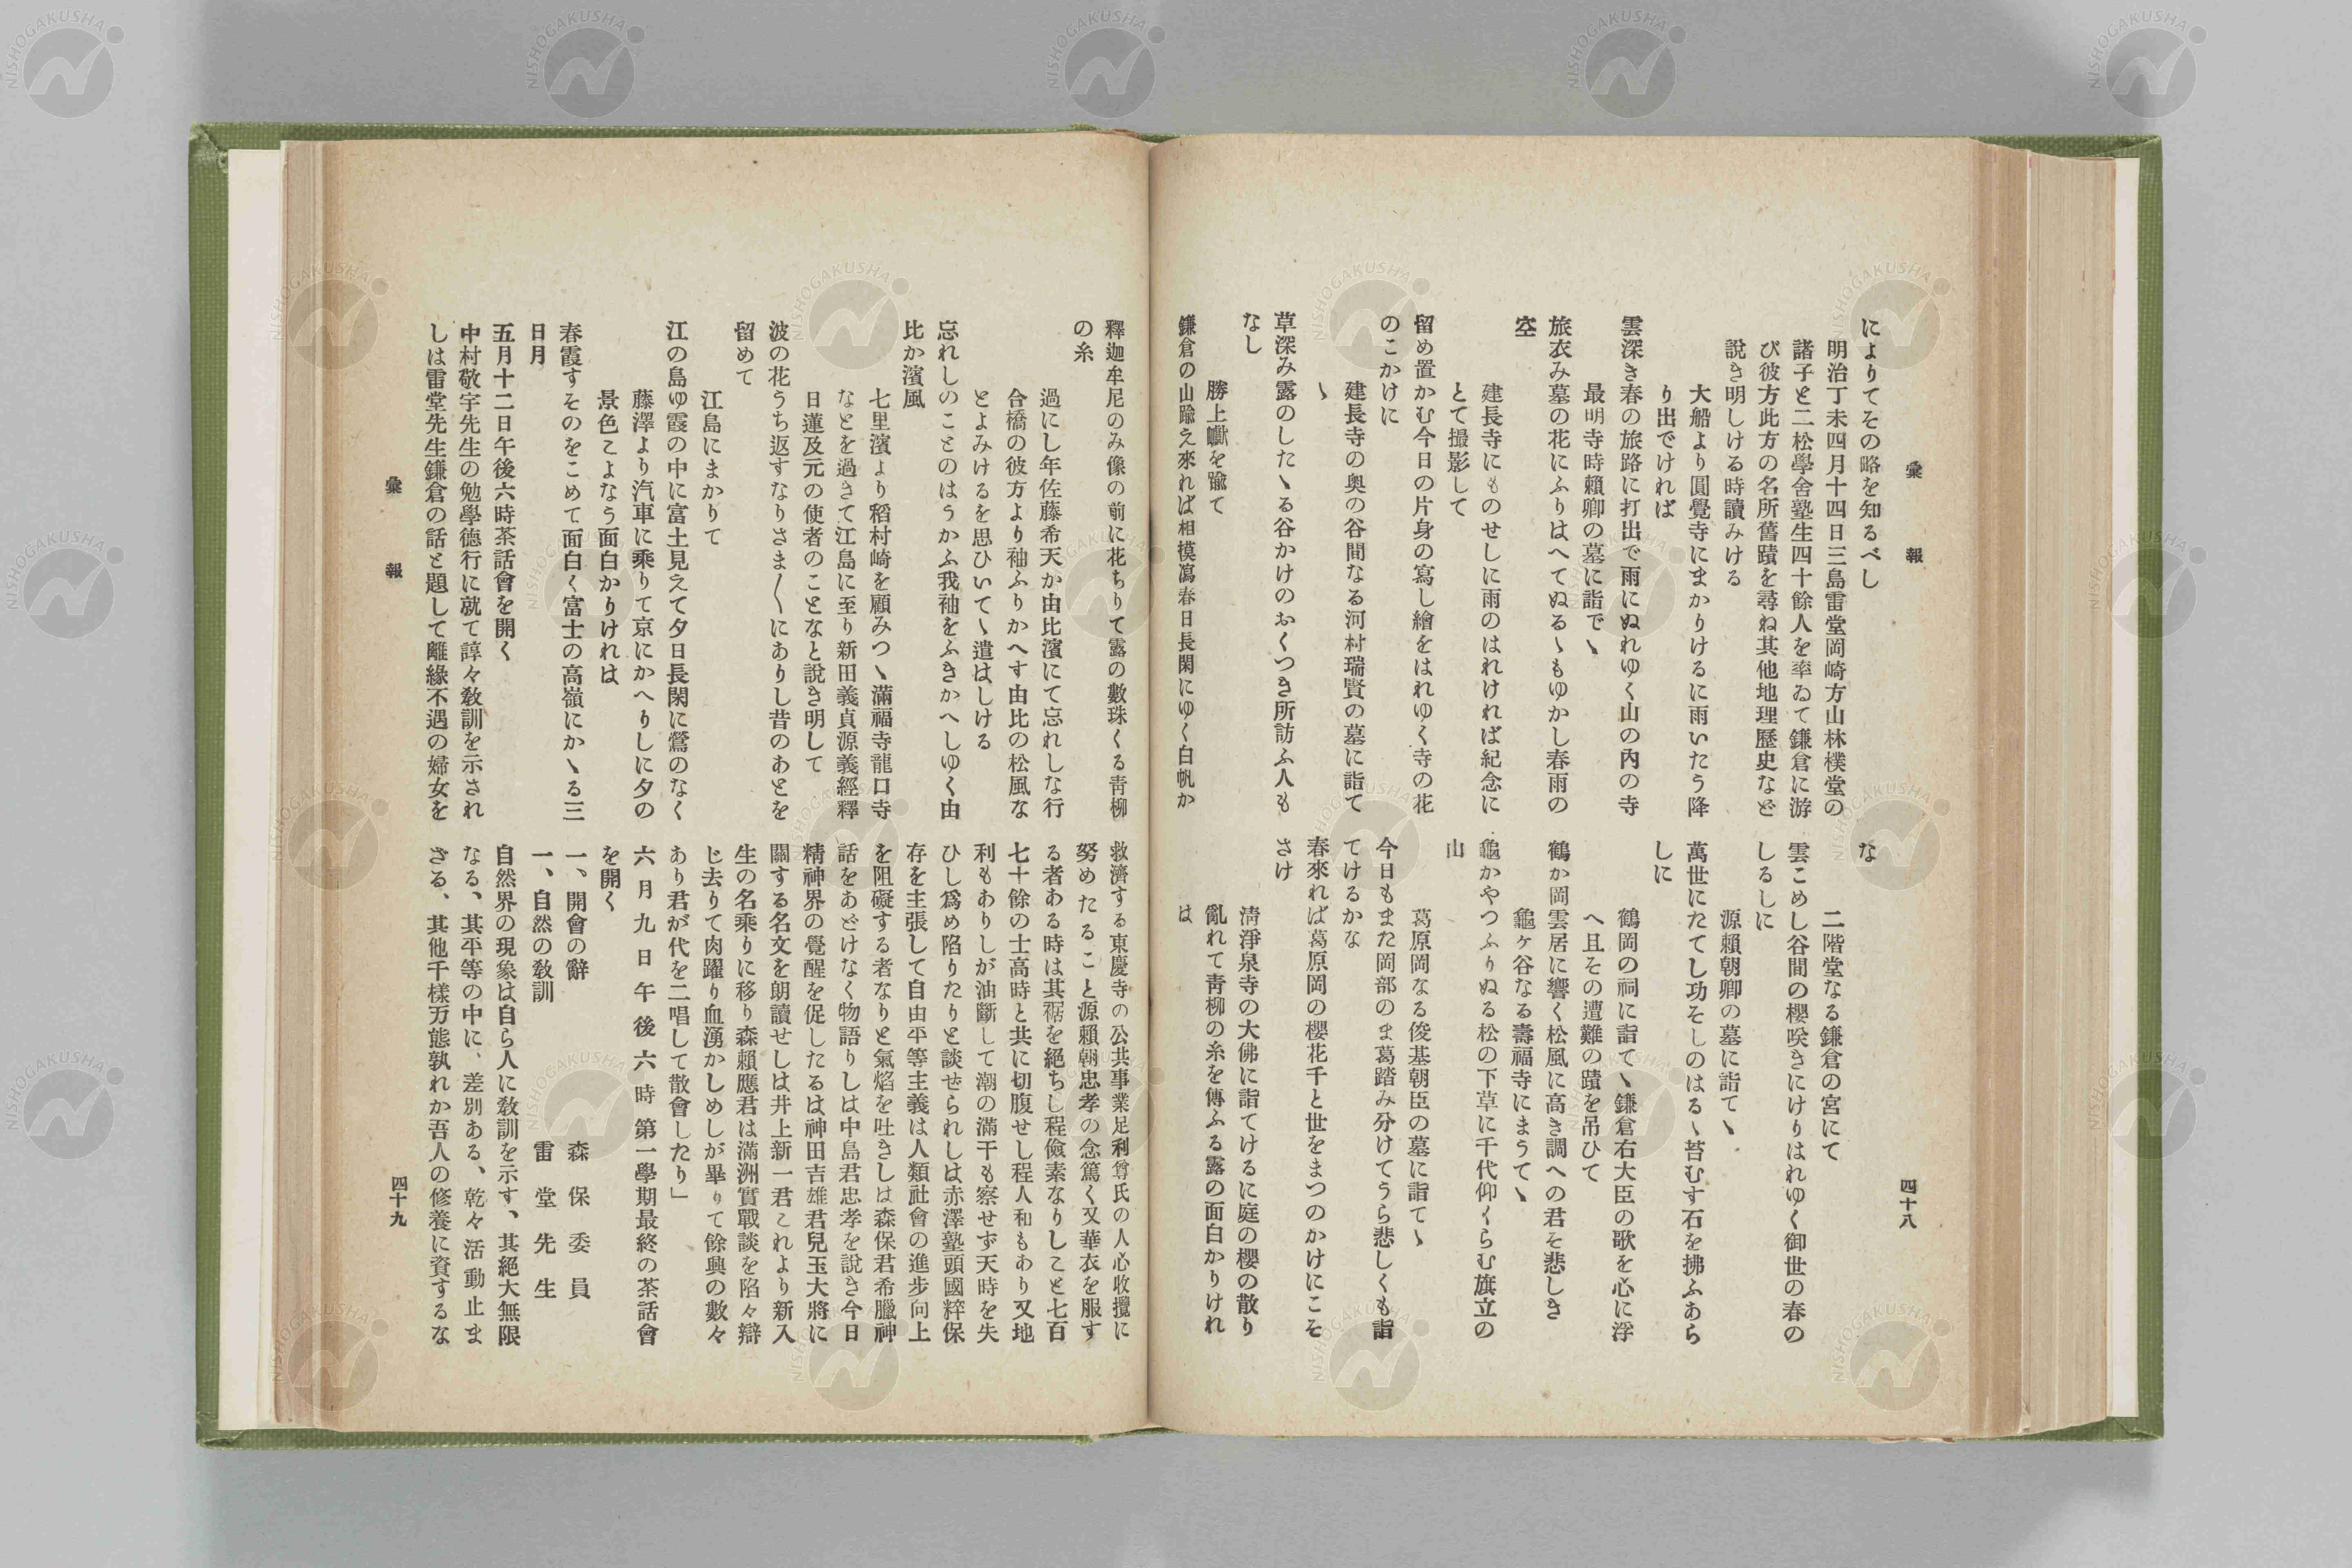 彙報
四十八
によりてその略を知るべし
明治丁未四月十四日三島雷堂岡崎方山林樸堂の
諸子と二松學舍塾生四十餘人を率ゐて鎌倉に游
び彼方此方の名所舊蹟を尋ね其他地理歷史など
說き明しける時讀みける
大船より圓覺寺にまかりけるに雨いたう降
り出でければ
雲深き春の旅路に打出で雨にぬれゆく山の內の寺
最明寺時賴卿の墓に詣で〻
旅衣み墓の花にふりはへてぬる〻もゆかし春雨の
空
建長寺にものせしに雨のはれければ紀念に
とて撮影して
留め置かむ今日の片身の寫し繪をはれゆく寺の花
のこかけに
建長寺の奥の谷間なる河村瑞賢の墓に詣て
〻
草深み露のした〻る谷かけのおくつき所訪ふ人も
なし
勝上巘を踰て
鎌倉の山踰え來れば相摸瀉春日長閑にゆく白帆か
な
二階堂なる鎌倉の宮にて
雲こめし谷間の櫻咲きにけりはれゆく御世の春の
しるしに
源賴朝卿の墓に詣て〻
萬世にたてし功そしのはる〻苔むす石を拂ふあら
しに
鶴岡の祠に詣て〻鎌倉右大臣の歌を心に浮
へ且その遭難の蹟を吊ひて
鶴か岡雲居に響く松風に高き調への君そ悲しき
龜ヶ谷なる壽福寺にまうて〻
龜かやつふりぬる松の下草に千代仰くらむ旗立の
山
葛原岡なる俊基朝臣の墓に詣て〻
今日もまた岡部のま葛踏み分けてうら悲しくも詣
てけるかな
春來れば葛原岡の櫻花千と世をまつのかけにこそ
さけ
淸淨泉寺の大佛に詣てけるに庭の櫻の散り
亂れて靑柳の糸を傳ふる露の面白かりけれ
は
釋迦牟尼のみ像の前に花ちりて露の數珠くる靑柳
の糸
過にし年佐藤希天か由比濱にて忘れしな行
合橋の彼方より袖ふりかへす由比の松風な
とよみけるを思ひいて〻遣はしける
忘れしのことのはうかふ我袖をふきかへしゆく由
比か濱風
七里濱より稻村崎を顧みつ〻滿福寺龍口寺
なとを過きて江島に至り新田義貞源義經釋
日蓮及元の使者のことなと說き明して
波の花うち返すなりさま〱にありし昔のあとを
留めて
江島にまかりて
江の島ゆ霞の中に富士見えて夕日長閑に鶯のなく
藤澤より汽車に乘りて京にかへりしに夕の
景色こよなう面白かりけれは
春霞すそのをこめて面白く富士の高嶺にか〻る三
日月
五月十二日午後六時茶話會を開く
中村敬宇先生の勉學德行に就て諄々敎訓を示され
しは雷堂先生鎌倉の話と題して離緣不遇の婦女を
救濟する東慶寺の公共事業足利尊氏の人心收攬に
努めたること源賴朝忠孝の念篤く又華衣を服す
る者ある時は其裾を絕ちし程儉素なりしこと七百
七十餘の士高時と共に切腹せし程人和もあり又地
利もありしが油斷して潮の滿干も察せず天時を失
ひし爲め陷りたりと談ぜられしは赤澤塾頭國粹保
存を主張して自由平等主義は人類社會の進步向上
を阻礙する者なりと氣焰を吐きしは森保君希臘神
話をあどけなく物語りしは中島君忠孝を說き今日
精神界の覺醒を促したるは神田吉雄君兒玉大將に
關する名文を朗讀せしは井上新一君これより新入
生の名乘りに移り森賴應君は滿洲實戰談を陷々辯
じ去りて肉躍り血湧かしめしが畢りて餘興の數々
あり君が代を二唱して散會したり」
六月九日午後六時第一學期最終の茶話會
を開く
一、開會の辭　森保委員
一、自然の敎訓　雷堂先生
自然界の現象は自ら人に敎訓を示す、其絕大無限
なる、其平等の中に、差別ある、乾々活動止ま
ざる、其他千樣万態孰れか吾人の修養に資するな
彙報
四十九
NISHOGAKUSHA